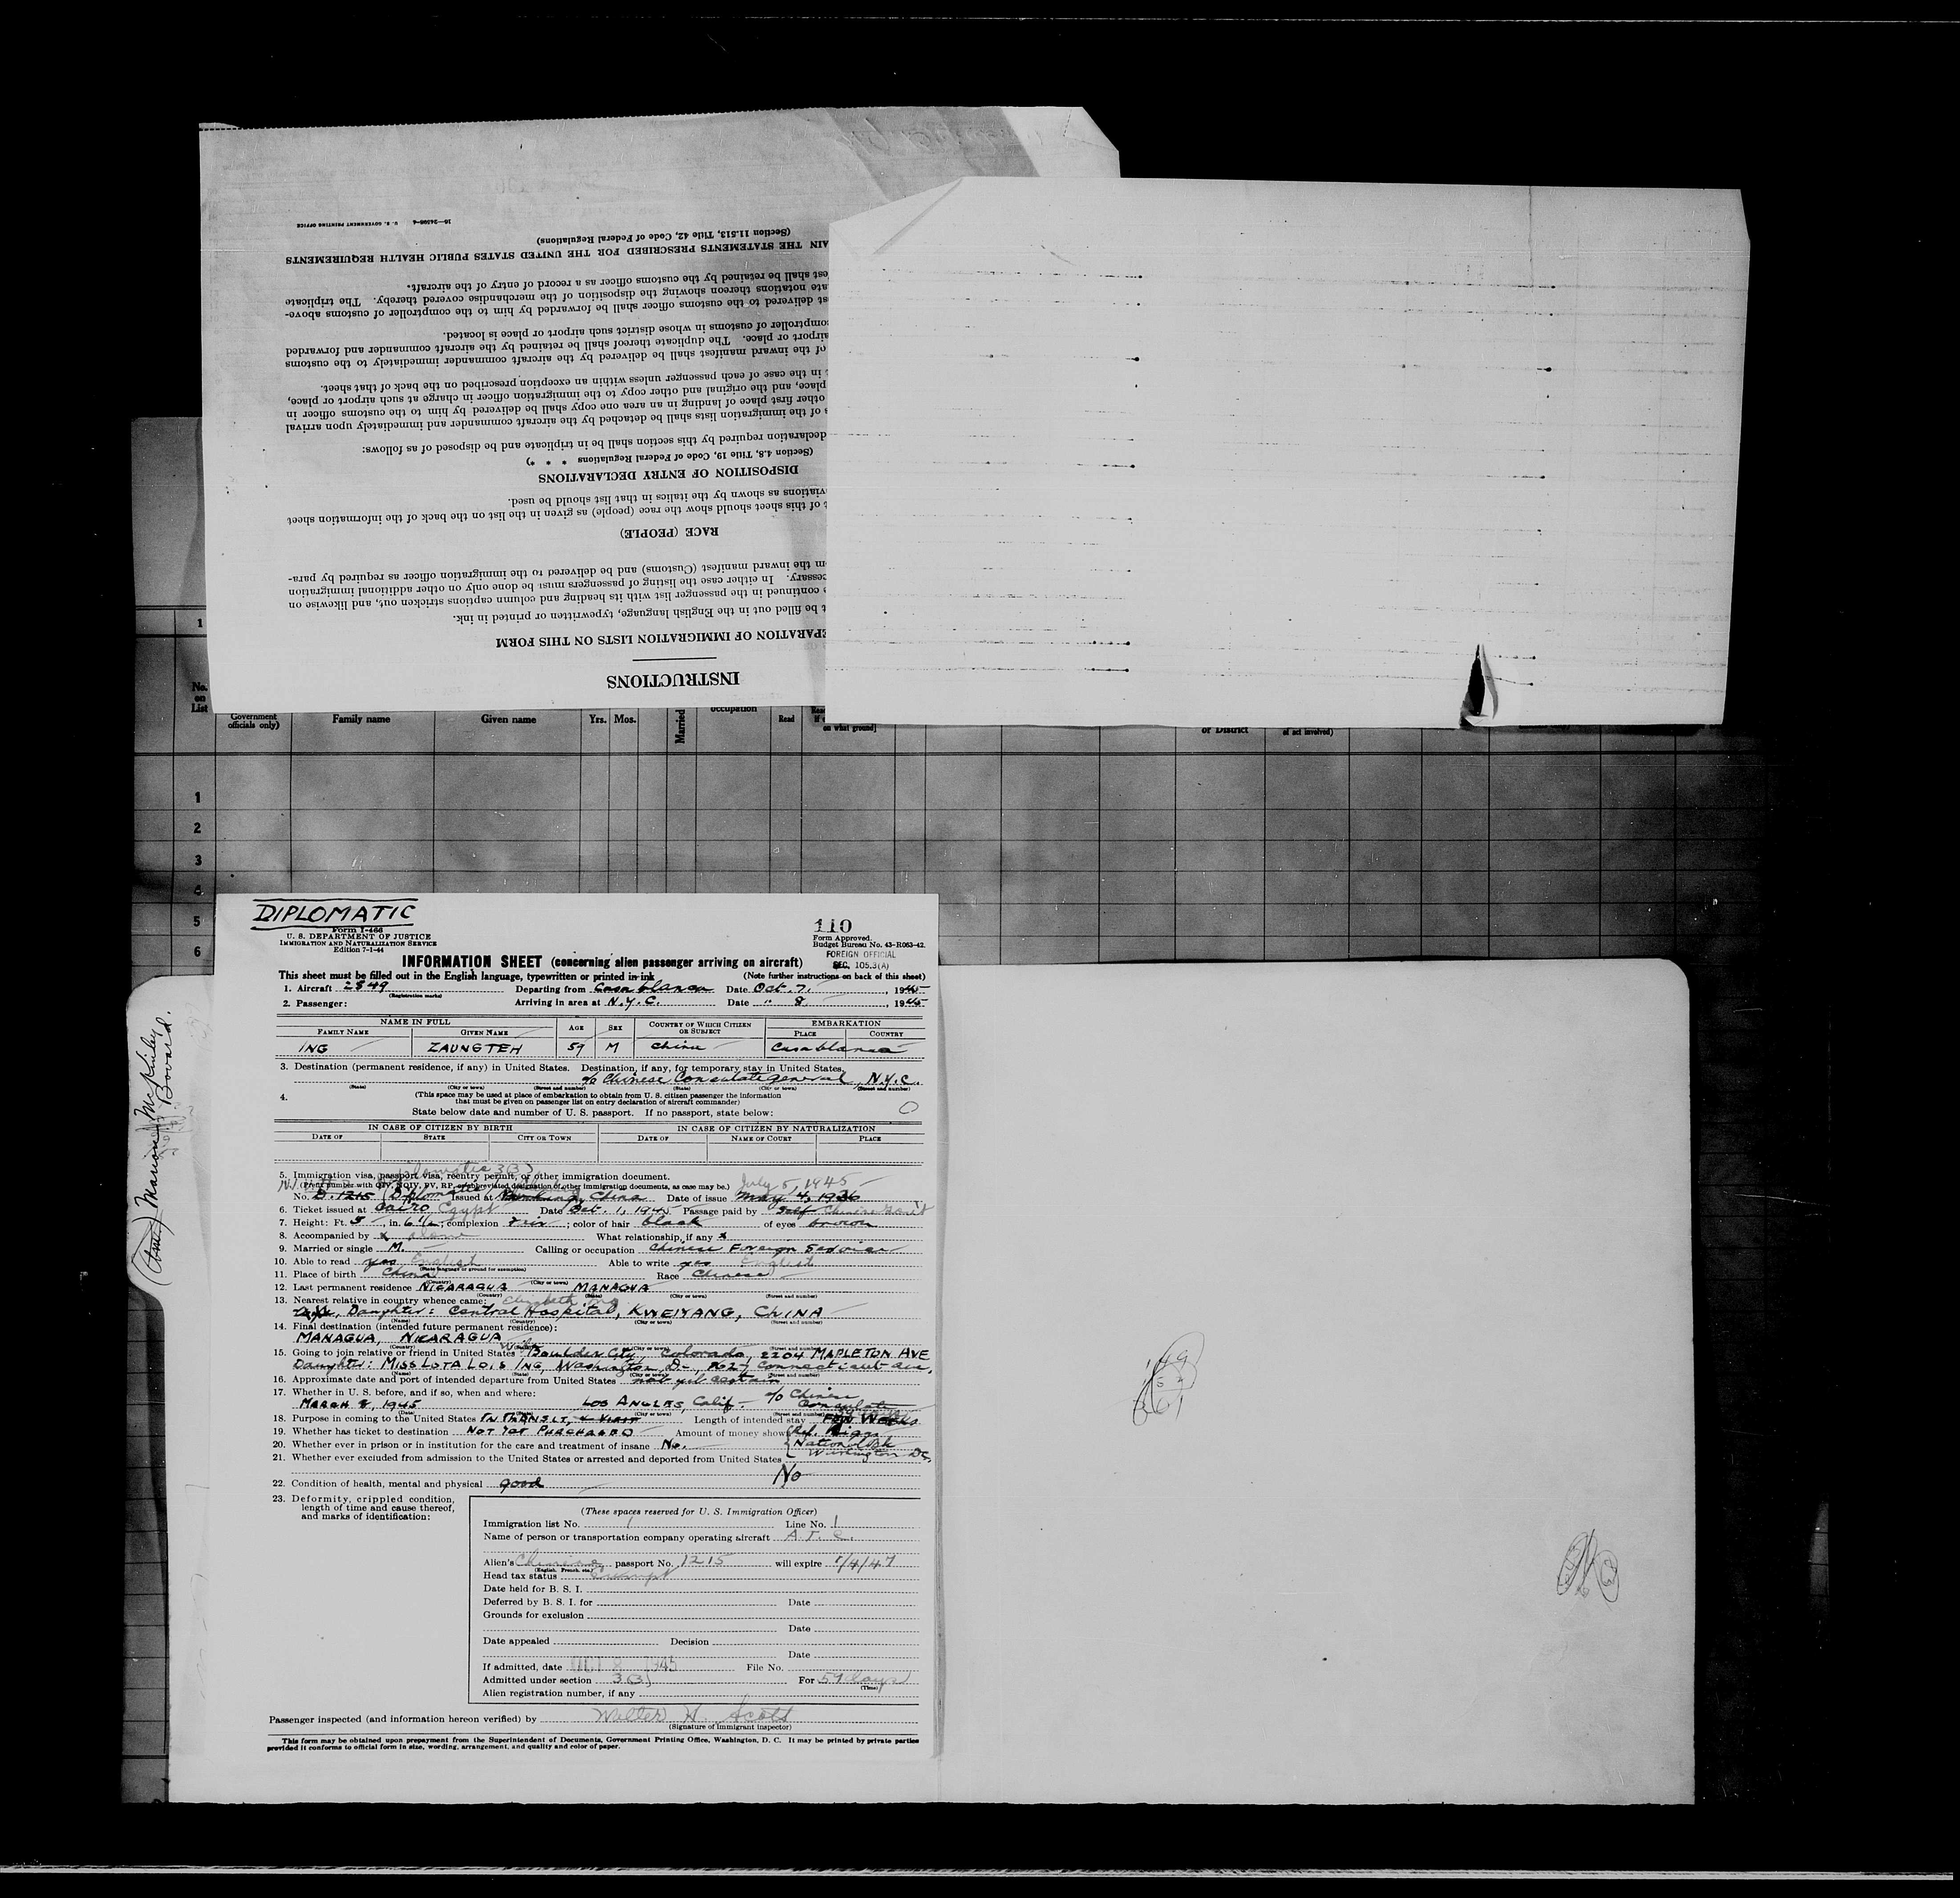 16—24898-4 U. S. GOVERNMENT PRINTING OFFICE
(Section 11.513, Title 42, Code of Federal Regulations)
AIN THE STATEMENTS PRESCRIBED FOR THE UNITED STATES PUBLIC HEALTH REQUIREMENTS
est shall be retained by the customs officer as a record of entry of the aircraft.
ate notations thereon showing the disposition of the merchandise covered thereby. The triplicate
st delivered to the customs officer shall be forwarded by him to the comptroller of customs above-
omptroller of customs in whose district such airport or place is located.
airport or place. The duplicate thereof shall be retained by the aircraft commander and forwarded
of the inward manifest shall be delivered by the aircraft commander immediately to the customs
in the case of each passenger unless within an exception prescribed on the back of that sheet.
place, and the original and other copy to the immigration officer in charge at such airport or place,
other first place of landing in an area one copy shall be delivered by him to the customs officer in
s of the immigration lists shall be detached by the aircraft commander and immediately upon arrival
declaration required by this section shall be in triplicate and be disposed of as follows:
(Section 4.8, Title 19, Code of Federal Regulations * * *)
DISPOSITION OF ENTRY DECLARATIONS
viations as shown by the italics in that list should be used.
t of this sheet should show the race (people) as given in the list on the back of the information sheet
RACE (PEOPLE)
m the inward manifest (Customs) and be delivered to the immigration officer as required by para-
cessary. In either case the listing of passengers must be done only on other additional immigration
e continued in the passenger list with its heading and column captions stricken out, and likewise on
t be filled out in the English language, typewritten or printed in ink.
EPARATION OF IMMIGRATION LISTS ON THIS FORM
INSTRUCTIONS
1
No. on List
Government officials only) Family name Given name Yrs. Mos. Married occupation Read on what ground] or District of act involved)
1
2
3
4
5
6
DIPLOMATIC
110
Form I-466
U. S. DEPARTMENT OF JUSTICE
IMMIGRATION AND NATURALIZATION SERVICE
Edition 7-1-44
Form Approved.
Budget Bureau No. 43-R063-42.
FOREIGN OFFICIAL
SEC. 105.3(A)
INFORMATION SHEET (concerning alien passenger arriving on aircraft)
This sheet must be filled out in the English language, typewritten or printed in ink (Note further instructions on back of this sheet)
1. Aircraft 2849 Departing from Casablanca Date Oct. 7, 1945
(Registration marks)
2. Passenger: Arriving in area at N.Y.C. Date " 8 , 1945
NAME IN FULL AGE SEX COUNTRY OF WHICH CITIZEN OR SUBJECT EMBARKATION
FAMILY NAME GIVEN NAME PLACE COUNTRY
ING ZAUNGTEH 59 M China Casablanca
3. Destination (permanent residence, if any) in United States. Destination, if any, for temporary stay in United States.
c/o Chinese Consulate general, N.Y.C.
(State) (City or town) (Street and number) (State) (City or town) (Street and number)
4. (This space may be used at place of embarkation to obtain from U. S. citizen passenger the information
that must be given on passenger list on entry declaration of aircraft commander)
State below date and number of U. S. passport. If no passport, state below:
IN CASE OF CITIZEN BY BIRTH IN CASE OF CITIZEN BY NATURALIZATION
DATE OF STATE CITY OR TOWN DATE OF NAME OF COURT PLACE
5. Immigration visa, passport visa, reentry permit, or other immigration document.
July 5, 1945
No. D-1215 (Diplomatic Issued at Nanking, China Date of issue May 4, 1936
6. Ticket issued at Cairo Egypt Date Oct. 1, 1945 Passage paid by Self Chinese Govt
7. Height: Ft. 5 , in. 6½ ; complexion Fair ; color of hair black of eyes brown
8. Accompanied by x alone What relationship, if any x
9. Married or single M. Calling or occupation Chinese Foreign Service
10. Able to read yes English Able to write yes English
11. Place of birth China Race Chinese
12. Last permanent residence NICARAGUA MANAGUA
(Country) (City or town) (Street and number)
13. Nearest relative in country whence came: Elizabeth Ing
Daughter: Central Hospital, KWEIYANG, CHINA
(Name) (Country) (City or town) (Street and number)
14. Final destination (intended future permanent residence):
MANAGUA, NICARAGUA
15. Going to join relative or friend in United States Wife Boulder City, Colorado, 2204 MAPLETON AVE
Daughter: MISS LOTA LOIS ING, Washington, D.C., 2627 Connecticut Ave.
16. Approximate date and port of intended departure from United States not yet certain
17. Whether in U. S. before, and if so, when and where:
MARCH 8, 1945 LOS ANGLES, Calif. c/o Chinese Consulate
18. Purpose in coming to the United States IN TRANSIT, & VISIT Length of intended stay FEW WEEKS
19. Whether has ticket to destination NOT YET PURCHASED Amount of money shown Ref. Riggs
20. Whether ever in prison or in institution for the care and treatment of insane No. National Bk
Washington D.C.
21. Whether ever excluded from admission to the United States or arrested and deported from United States
No
22. Condition of health, mental and physical good
23. Deformity, crippled condition,
length of time and cause thereof,
and marks of identification:
(These spaces reserved for U. S. Immigration Officer)
Immigration list No. 1 Line No. 1
Name of person or transportation company operating aircraft A.T.C.
Alien's Chinese passport No. 1215 will expire 1/4/47
(English, French, etc.)
Head tax status Exempt
Date held for B. S. I.
Deferred by B. S. I. for Date
Grounds for exclusion
Date
Date appealed Decision
Date
If admitted, date OCT 8 1945 File No.
Admitted under section 3(3) For 59 days
(Time)
Alien registration number, if any
Passenger inspected (and information hereon verified) by Walter H. Scott
(Signature of Immigrant Inspector)
This form may be obtained upon prepayment from the Superintendent of Documents, Government Printing Office, Washington, D. C. It may be printed by private parties
provided it conforms to official form in size, wording, arrangement, and quality and color of paper.
Marion McKinley
Bovard.